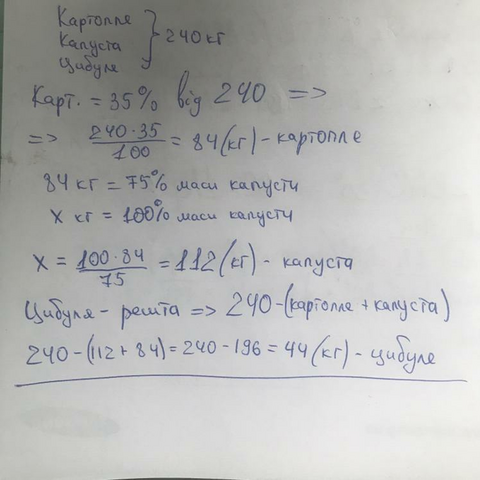 Картопле
Капуста } 240 кг
Цибуле
Карт. = 35% від 240 =>
=> 240·35/100 = 84(кг) - картопле
84 кг = 75% маси капусти
х кг = 100% маси капусти
х = 100·84/75 = 112(кг) - капуста
Цибуля - решта => 240-(картопле + капуста)
240-(112+84)=240-196=44(кг) - цибуле